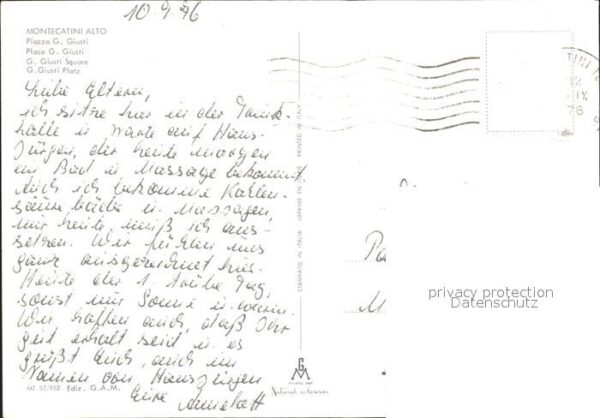 10.9.76
MONTECATINI ALTO
Piazza G. Giusti
Place G. Giusti
G. Giusti Square
G. Giusti Platz
Liebe Eltern,
ich sitze hier in der Trink-
halle u. warte auf Hans-
Jürgen, der heute morgen
ein Bad u. Massage bekommt.
Auch ich bekomme Kohlen-
säurebäder u. Massagen,
nur heute muß ich aus-
setzen. Wir fühlen uns
ganz ausgezeichnet hier.
Heute der 1. trübe Tag,
sonst nur Sonne u. warm.
Wir hoffen auch, daß Ihr
gut erhalt seid u. es
grüßt Euch, auch im
Namen von Hansjürgen
Eure
MT 57/152 Ediz. G.A.M.
STAMPATO IN ITALIA
PRINTED IN ITALY
GAM
IX
76
Pa
M
privacy protection
Datenschutz